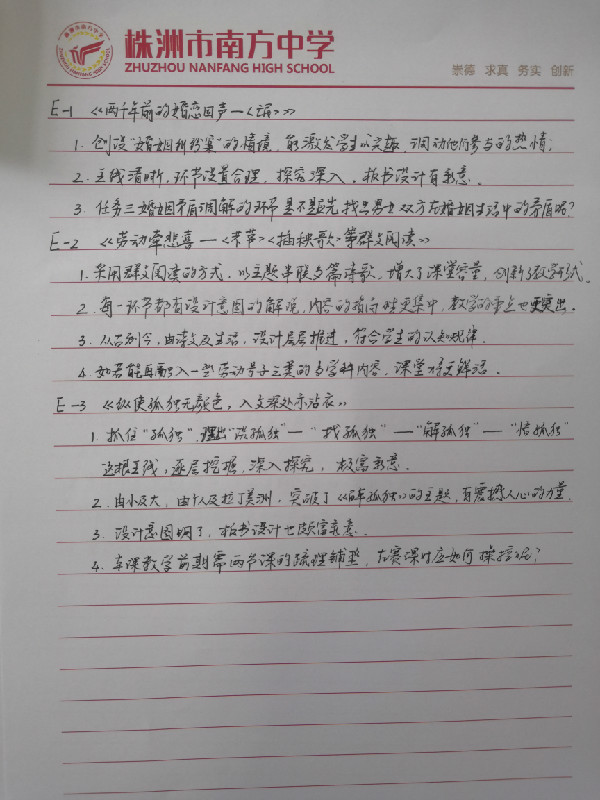 株洲市南方中学
ZHUZHOU NANFANG HIGH SCHOOL
崇德 求真 务实 创新
E-1 《两千年前的婚恋回声—《氓》》
1. 创设"婚姻纠纷案"的情境，能激发学生的兴趣，调动他们参与的热情；
2. 主线清晰，环节设置合理，探究深入，板书设计有新意。
3. 任务三婚姻矛盾调解的环节是不是先找出男女双方在婚姻生活中的矛盾呢？
E-2 《劳动牵悲喜—《芣苢》《插秧歌》等群文阅读》
1. 采用群文阅读的方式，以主题串联多篇诗歌，增大了课堂容量，创新了教学形式。
2. 每一环节都有设计意图的解说，内容的指向性更集中，教学的重点也更突出。
3. 从古到今，由诗文及生活，设计层层推进，符合学生的认知规律。
4. 如若能再融入一些劳动号子之类的多学科内容，课堂将更鲜活。
E-3 《纵使孤独无颜色，入文深处亦沾衣》
1. 抓住"孤独"，理出"说孤独"—"找孤独"—"解孤独"—"悟孤独"
这根主线，逐层挖掘，深入探究，极富新意。
2. 由小及大，由个人及拉丁美洲，突破了《百年孤独》的主题，有震撼人心的力量。
3. 设计意图明了，板书设计也颇富新意。
4. 本课教学前期需两节课的梳理铺垫，在赛课时应如何操控呢？